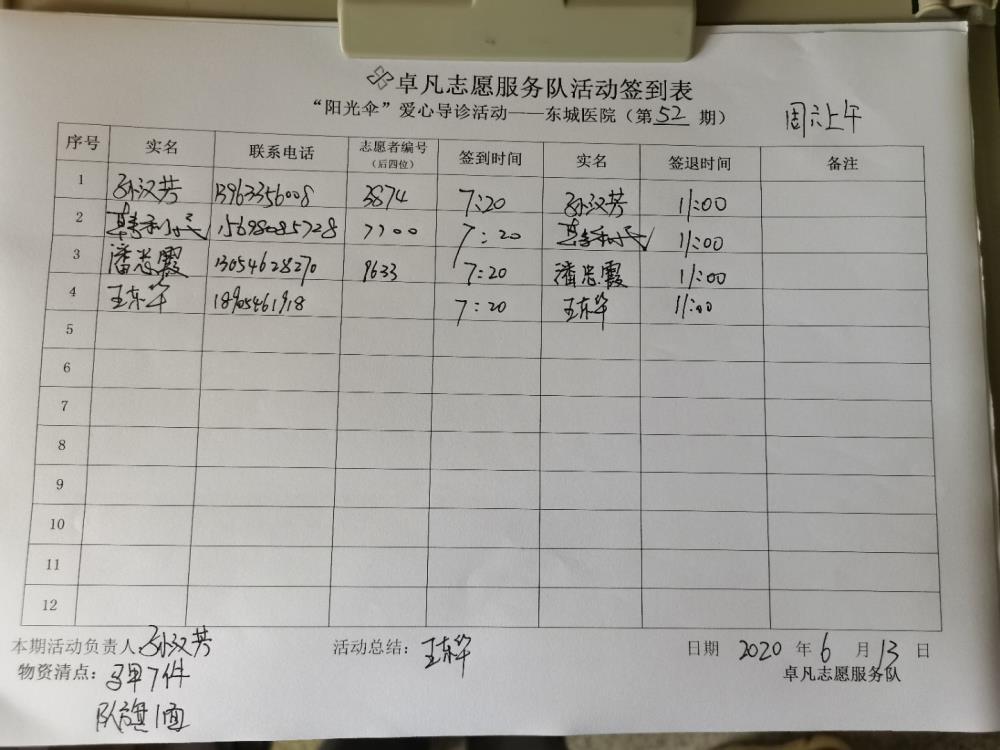 卓凡志愿服务队活动签到表
“阳光伞”爱心导诊活动——东城医院（第 52 期） 周六上午
序号 实名 联系电话 志愿者编号（后四位） 签到时间 实名 签退时间 备注
1 孙汉芳 13963356008 3874 7:20 孙汉芳 11:00
2 15698085728 7700 7:20 11:00
3 潘忠霞 13054628270 9633 7:20 潘忠霞 11:00
4 王东华 18905461918 7:20 王东华 11:00
5
6
7
8
9
10
11
12
本期活动负责人:孙汉芳 活动总结:王东华 日期 2020 年 6 月 13 日
物资清点:马甲7件 卓凡志愿服务队
队旗1面